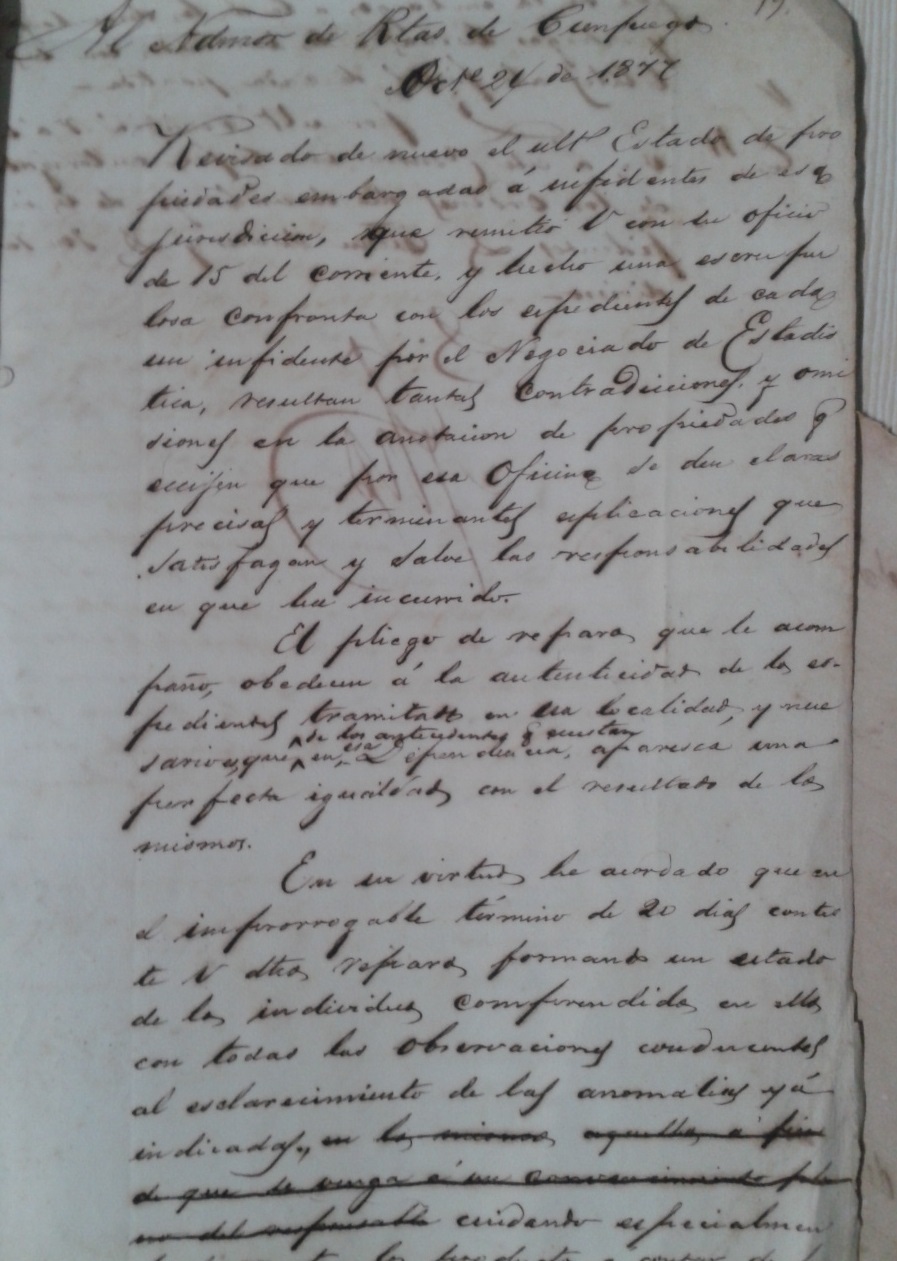 19.
Al Admor de Rtas de Cienfuegos
Octe 24 de 1877
Revisado de nuevo el ultº Estado de pro
piedades embargadas á infidentes de esa
jurisdicion, que remitió V con su oficio
de 15 del corriente, y hecho una escrupu
losa confronta con los espedientes de cada
un infidente por el Negociado de Estadis
tica, resultan tantas contradiciones, y omi
siones en la anotacion de propiedades q
ecsijen que por esa Oficina se den claras
precisas y terminantes esplicaciones que
satisfagan y salve las responsabilidades
en que ha incurrido.
El pliego de reparos que le acom
paño, obedecen á la autenticidad de los es-
pedientes tramitados en esa localidad, y nece
de los antecedentes q constan
sario es, que en esa Dependencia, aparesca una
perfecta igualdad con el resultado de los
mismos.
En su virtud he acordado que en
el improrrogable término de 20 dias contes
te V dhos reparos formando un estado
de los individuos comprendidos en ellos
con todas las observaciones conducentes
al esclarecimiento de las anomalias yá
indicadas, en los mismos aquellos á fin
de que se venga á un convencimiento ple
no del responsable cuidando especialmen